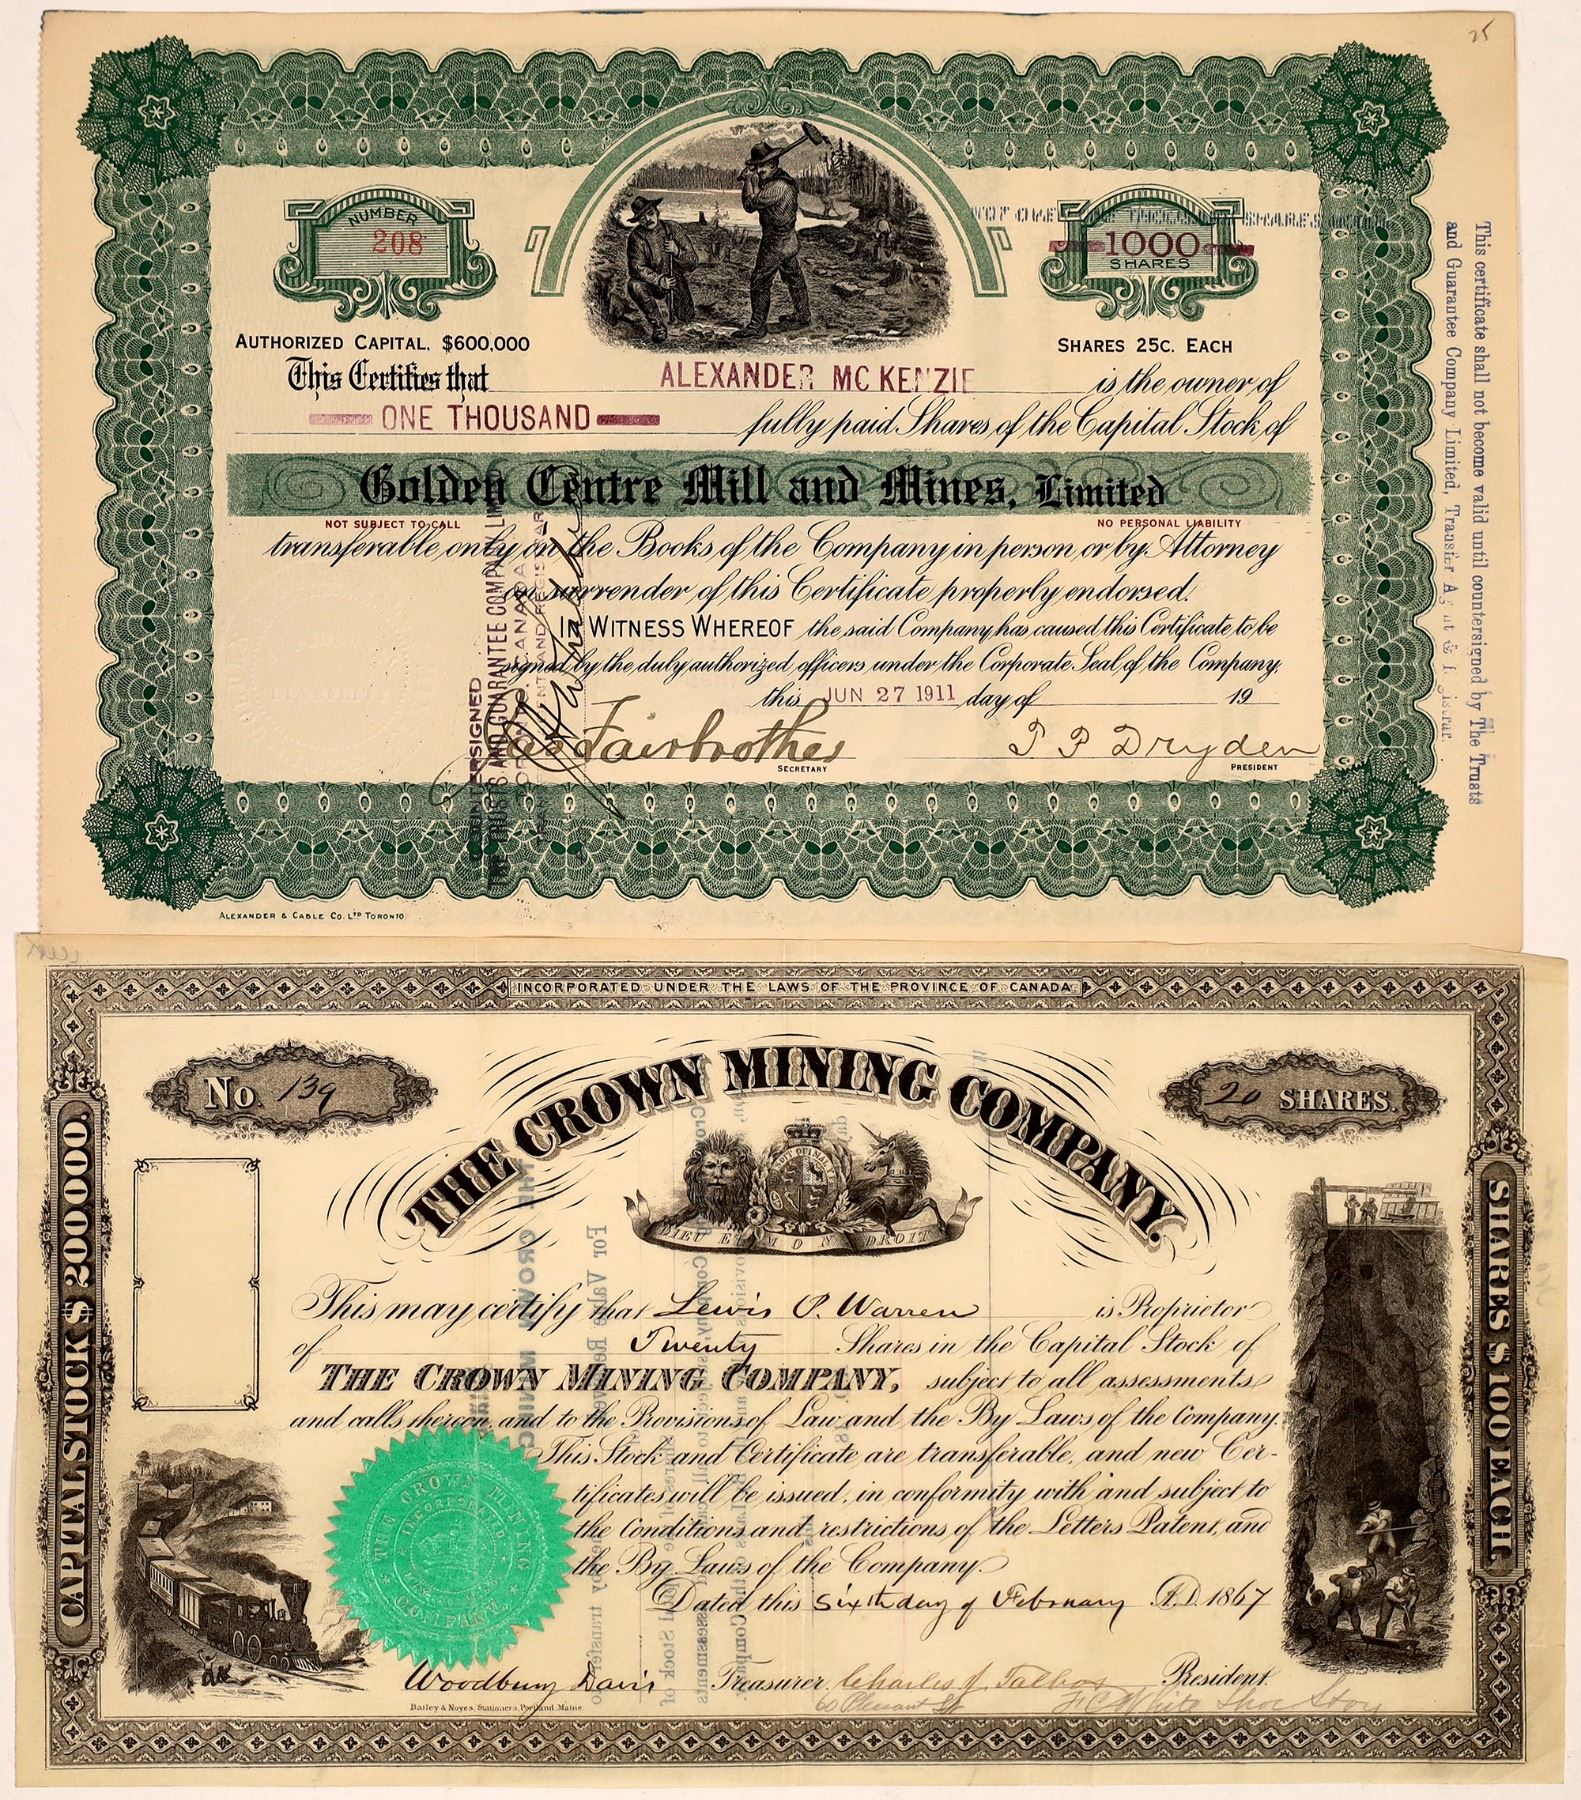 25
NUMBER
208
NOT OVER ONE THOUSAND SHARES
1000
SHARES
AUTHORIZED CAPITAL, $600,000
SHARES 25C. EACH
This Certifies that ALEXANDER MC KENZIE is the owner of
ONE THOUSAND fully paid Shares of the Capital Stock of
Golden Centre Mill and Mines, Limited
NOT SUBJECT TO CALL
NO PERSONAL LIABILITY
transferable only on the Books of the Company in person or by Attorney
on surrender of this Certificate properly endorsed.
IN WITNESS WHEREOF the said Company has caused this Certificate to be
signed by the duly authorized officers under the Corporate Seal of the Company,
this JUN 27 1911 day of 19
Jas Fairbrother
SECRETARY
P P Dryden
PRESIDENT
COUNTERSIGNED
THE TRUSTS AND GUARANTEE COMPANY, LIMITED
TORONTO, CANADA
TRANSFER AGENT AND REGISTRAR
This certificate shall not become valid until countersigned by The Trusts
and Guarantee Company Limited, Transfer Agent & Registrar.
ALEXANDER & CABLE CO. LTD TORONTO.
INCORPORATED UNDER THE LAWS OF THE PROVINCE OF CANADA.
No. 139
THE CROWN MINING COMPANY.
20 SHARES.
DIEU ET MON DROIT
CAPITAL STOCK $ 200,000.
SHARES $100 EACH
This may certify that Lewis P. Warren is Proprietor
of Twenty Shares in the Capital Stock of
THE CROWN MINING COMPANY, subject to all assessments
and calls thereon, and to the Provisions of Law and the By Laws of the Company.
This Stock and Certificate are transferable, and new Cer-
tificates will be issued, in conformity with and subject to
the Conditions and restrictions of the Letters Patent, and
the By Laws of the Company.
Dated this Sixth day of February A.D. 1867
THE CROWN MINING COMPANY
INCORPORATED
Woodbury Davis Treasurer. Charles J. Talbot President.
60 Pleasant St
F C White Shoe Story
Bailey & Noyes, Stationers, Portland, Maine.